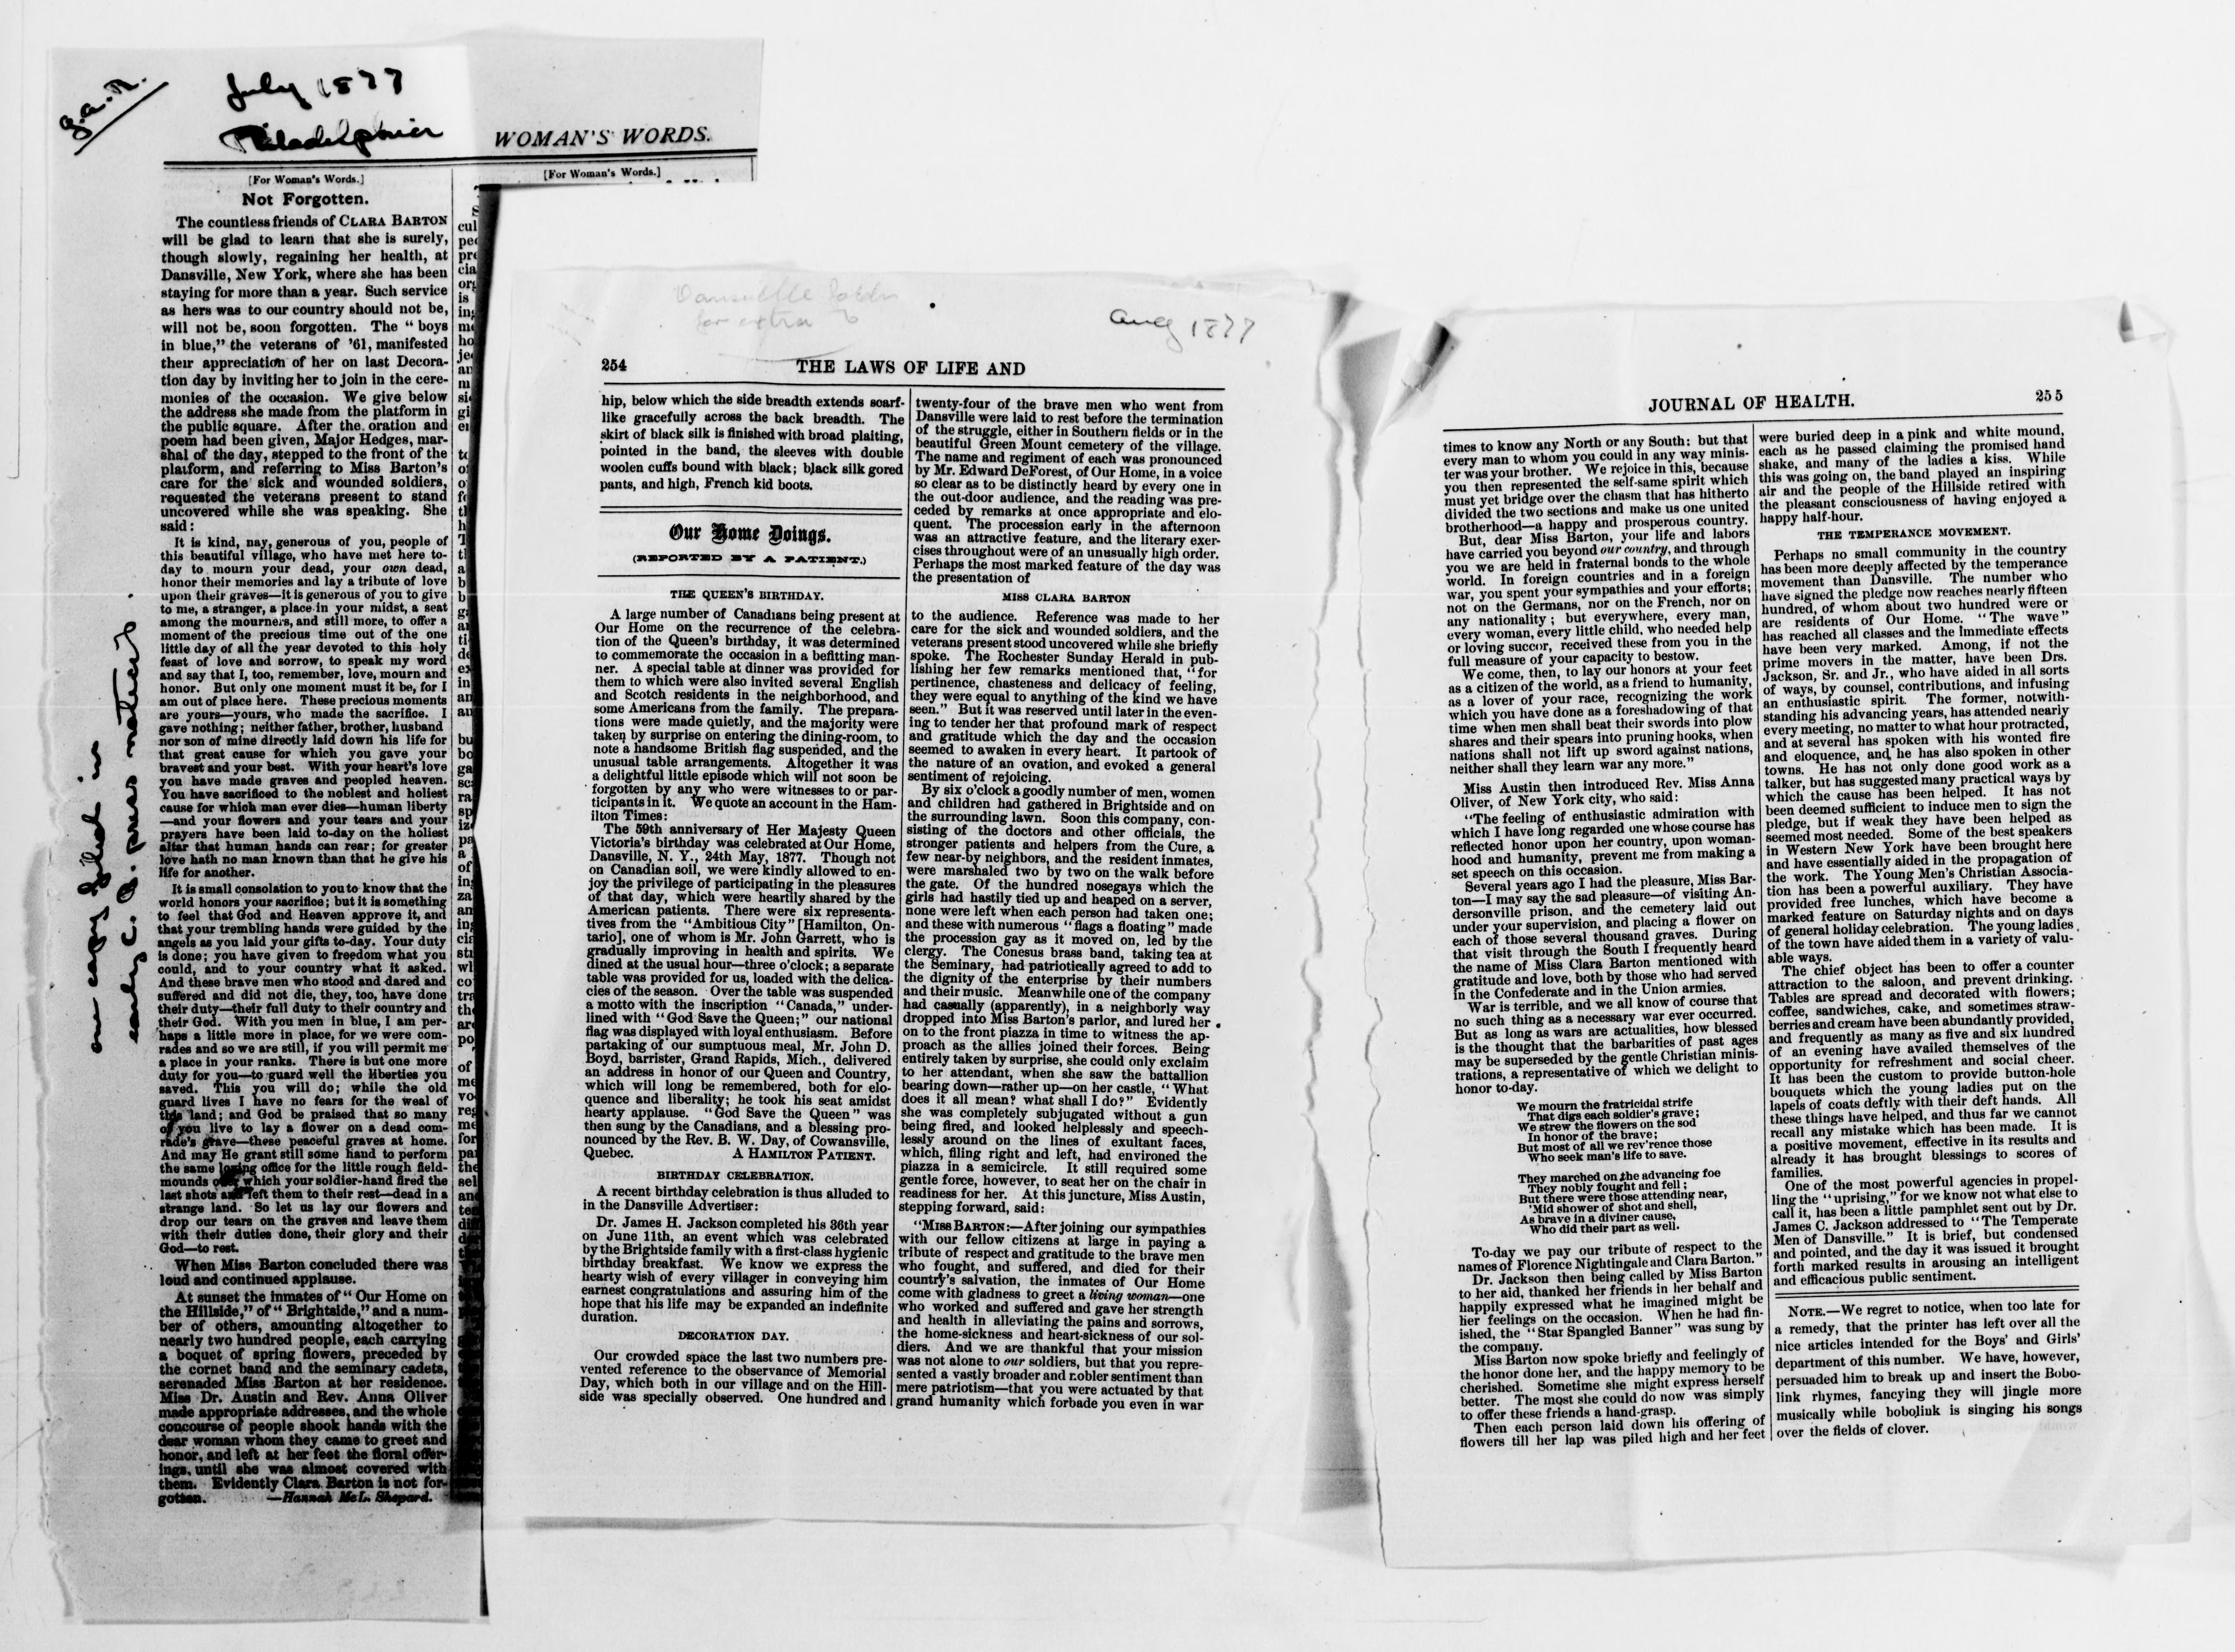 G.A.R.
July 1877
Philadelphia
WOMAN'S WORDS.
[For Woman's Words.]
[For Woman's Words.]
Not Forgotten.
The countless friends of CLARA BARTON
will be glad to learn that she is surely,
though slowly, regaining her health, at
Dansville, New York, where she has been
staying for more than a year. Such service
as hers was to our country should not be,
will not be, soon forgotten. The "boys
in blue," the veterans of '61, manifested
their appreciation of her on last Decora-
tion day by inviting her to join in the cere-
monies of the occasion. We give below
the address she made from the platform in
the public square. After the oration and
poem had been given, Major Hedges, mar-
shal of the day, stepped to the front of the
platform, and referring to Miss Barton's
care for the sick and wounded soldiers,
requested the veterans present to stand
uncovered while she was speaking. She
said:
It is kind, nay, generous of you, people of
this beautiful village, who have met here to-
day to mourn your dead, your own dead,
honor their memories and lay a tribute of love
upon their graves—it is generous of you to give
to me, a stranger, a place in your midst, a seat
among the mourners, and still more, to offer a
moment of the precious time out of the one
little day of all the year devoted to this holy
feast of love and sorrow, to speak my word
and say that I, too, remember, love, mourn and
honor. But only one moment must it be, for I
am out of place here. These precious moments
are yours—yours, who made the sacrifice. I
gave nothing; neither father, brother, husband
nor son of mine directly laid down his life for
that great cause for which you gave your
bravest and your best. With your heart's love
you have made graves and peopled heaven.
You have sacrificed to the noblest and holiest
cause for which man ever dies—human liberty
—and your flowers and your tears and your
prayers have been laid to-day on the holiest
altar that human hands can rear; for greater
love hath no man known than that he give his
life for another.
It is small consolation to you to know that the
world honors your sacrifice; but it is something
to feel that God and Heaven approve it, and
that your trembling hands were guided by the
angels as you laid your gifts to-day. Your duty
is done; you have given to freedom what you
could, and to your country what it asked.
And these brave men who stood and dared and
suffered and did not die, they, too, have done
their duty—their full duty to their country and
their God. With you men in blue, I am per-
haps a little more in place, for we were com-
rades and so we are still, if you will permit me
a place in your ranks. There is but one more
duty for you—to guard well the liberties you
saved. This you will do; while the old
guard lives I have no fears for the weal of
this land; and God be praised that so many
of you live to lay a flower on a dead com-
rade's grave—these peaceful graves at home.
And may He grant still some hand to perform
the same loving office for the little rough field-
mounds over which your soldier-hand fired the
last shots and left them to their rest—dead in a
strange land. So let us lay our flowers and
drop our tears on the graves and leave them
with their duties done, their glory and their
God—to rest.
When Miss Barton concluded there was
loud and continued applause.
At sunset the inmates of "Our Home on
the Hillside," of "Brightside," and a num-
ber of others, amounting altogether to
nearly two hundred people, each carrying
a boquet of spring flowers, preceded by
the cornet band and the seminary cadets,
serenaded Miss Barton at her residence.
Miss Dr. Austin and Rev. Anna Oliver
made appropriate addresses, and the whole
concourse of people shook hands with the
dear woman whom they came to greet and
honor, and left at her feet the floral offer-
ings, until she was almost covered with
them. Evidently Clara Barton is not for-
gotten. —Hannah McL. Shepard.
one copy filed in
early C. B. press notices.
Aug 1877
254 THE LAWS OF LIFE AND
hip, below which the side breadth extends scarf-
like gracefully across the back breadth. The
skirt of black silk is finished with broad plaiting,
pointed in the band, the sleeves with double
woolen cuffs bound with black; black silk gored
pants, and high, French kid boots.
Our Home Doings.
(REPORTED BY A PATIENT.)
THE QUEEN'S BIRTHDAY.
A large number of Canadians being present at
Our Home on the recurrence of the celebra-
tion of the Queen's birthday, it was determined
to commemorate the occasion in a befitting man-
ner. A special table at dinner was provided for
them to which were also invited several English
and Scotch residents in the neighborhood, and
some Americans from the family. The prepara-
tions were made quietly, and the majority were
taken by surprise on entering the dining-room, to
note a handsome British flag suspended, and the
unusual table arrangements. Altogether it was
a delightful little episode which will not soon be
forgotten by any who were witnesses to or par-
ticipants in it. We quote an account in the Ham-
ilton Times:
The 59th anniversary of Her Majesty Queen
Victoria's birthday was celebrated at Our Home,
Dansville, N. Y., 24th May, 1877. Though not
on Canadian soil, we were kindly allowed to en-
joy the privilege of participating in the pleasures
of that day, which were heartily shared by the
American patients. There were six representa-
tives from the "Ambitious City" [Hamilton, On-
tario], one of whom is Mr. John Garrett, who is
gradually improving in health and spirits. We
dined at the usual hour—three o'clock; a separate
table was provided for us, loaded with the delica-
cies of the season. Over the table was suspended
a motto with the inscription "Canada," under-
lined with "God Save the Queen;" our national
flag was displayed with loyal enthusiasm. Before
partaking of our sumptuous meal, Mr. John D.
Boyd, barrister, Grand Rapids, Mich., delivered
an address in honor of our Queen and Country,
which will long be remembered, both for elo-
quence and liberality; he took his seat amidst
hearty applause. "God Save the Queen" was
then sung by the Canadians, and a blessing pro-
nounced by the Rev. B. W. Day, of Cowansville,
Quebec. A HAMILTON PATIENT.
BIRTHDAY CELEBRATION.
A recent birthday celebration is thus alluded to
in the Dansville Advertiser:
Dr. James H. Jackson completed his 36th year
on June 11th, an event which was celebrated
by the Brightside family with a first-class hygienic
birthday breakfast. We know we express the
hearty wish of every villager in conveying him
earnest congratulations and assuring him of the
hope that his life may be expanded an indefinite
duration.
DECORATION DAY.
Our crowded space the last two numbers pre-
vented reference to the observance of Memorial
Day, which both in our village and on the Hill-
side was specially observed. One hundred and
twenty-four of the brave men who went from
Dansville were laid to rest before the termination
of the struggle, either in Southern fields or in the
beautiful Green Mount cemetery of the village.
The name and regiment of each was pronounced
by Mr. Edward DeForest, of Our Home, in a voice
so clear as to be distinctly heard by every one in
the out-door audience, and the reading was pre-
ceded by remarks at once appropriate and elo-
quent. The procession early in the afternoon
was an attractive feature, and the literary exer-
cises throughout were of an unusually high order.
Perhaps the most marked feature of the day was
the presentation of
MISS CLARA BARTON
to the audience. Reference was made to her
care for the sick and wounded soldiers, and the
veterans present stood uncovered while she briefly
spoke. The Rochester Sunday Herald in pub-
lishing her few remarks mentioned that, "for
pertinence, chasteness and delicacy of feeling,
they were equal to anything of the kind we have
seen." But it was reserved until later in the even-
ing to tender her that profound mark of respect
and gratitude which the day and the occasion
seemed to awaken in every heart. It partook of
the nature of an ovation, and evoked a general
sentiment of rejoicing.
By six o'clock a goodly number of men, women
and children had gathered in Brightside and on
the surrounding lawn. Soon this company, con-
sisting of the doctors and other officials, the
stronger patients and helpers from the Cure, a
few near-by neighbors, and the resident inmates,
were marshaled two by two on the walk before
the gate. Of the hundred nosegays which the
girls had hastily tied up and heaped on a server,
none were left when each person had taken one;
and these with numerous "flags a floating" made
the procession gay as it moved on, led by the
clergy. The Conesus brass band, taking tea at
the Seminary, had patriotically agreed to add to
the dignity of the enterprise by their numbers
and their music. Meanwhile one of the company
had casually (apparently), in a neighborly way
dropped into Miss Barton's parlor, and lured her
on to the front piazza in time to witness the ap-
proach as the allies joined their forces. Being
entirely taken by surprise, she could only exclaim
to her attendant, when she saw the battallion
bearing down—rather up—on her castle, "What
does it all mean? what shall I do?" Evidently
she was completely subjugated without a gun
being fired, and looked helplessly and speech-
lessly around on the lines of exultant faces,
which, filing right and left, had environed the
piazza in a semicircle. It still required some
gentle force, however, to seat her on the chair in
readiness for her. At this juncture, Miss Austin,
stepping forward, said:
"MISS BARTON:—After joining our sympathies
with our fellow citizens at large in paying a
tribute of respect and gratitude to the brave men
who fought, and suffered, and died for their
country's salvation, the inmates of Our Home
come with gladness to greet a living woman—one
who worked and suffered and gave her strength
and health in alleviating the pains and sorrows,
the home-sickness and heart-sickness of our sol-
diers. And we are thankful that your mission
was not alone to our soldiers, but that you repre-
sented a vastly broader and nobler sentiment than
mere patriotism—that you were actuated by that
grand humanity which forbade you even in war
JOURNAL OF HEALTH. 255
times to know any North or any South: but that
every man to whom you could in any way minis-
ter was your brother. We rejoice in this, because
you then represented the self-same spirit which
must yet bridge over the chasm that has hitherto
divided the two sections and make us one united
brotherhood—a happy and prosperous country.
But, dear Miss Barton, your life and labors
have carried you beyond our country, and through
you we are held in fraternal bonds to the whole
world. In foreign countries and in a foreign
war, you spent your sympathies and your efforts;
not on the Germans, nor on the French, nor on
any nationality; but everywhere, every man,
every woman, every little child, who needed help
or loving succor, received these from you in the
full measure of your capacity to bestow.
We come, then, to lay our honors at your feet
as a citizen of the world, as a friend to humanity,
as a lover of your race, recognizing the work
which you have done as a foreshadowing of that
time when men shall beat their swords into plow
shares and their spears into pruning hooks, when
nations shall not lift up sword against nations,
neither shall they learn war any more."
Miss Austin then introduced Rev. Miss Anna
Oliver, of New York city, who said:
"The feeling of enthusiastic admiration with
which I have long regarded one whose course has
reflected honor upon her country, upon woman-
hood and humanity, prevent me from making a
set speech on this occasion.
Several years ago I had the pleasure, Miss Bar-
ton—I may say the sad pleasure—of visiting An-
dersonville prison, and the cemetery laid out
under your supervision, and placing a flower on
each of those several thousand graves. During
that visit through the South I frequently heard
the name of Miss Clara Barton mentioned with
gratitude and love, both by those who had served
in the Confederate and in the Union armies.
War is terrible, and we all know of course that
no such thing as a necessary war ever occurred.
But as long as wars are actualities, how blessed
is the thought that the barbarities of past ages
may be superseded by the gentle Christian minis-
trations, a representative of which we delight to
honor to-day.
We mourn the fratricidal strife
That digs each soldier's grave;
We strew the flowers on the sod
In honor of the brave;
But most of all we rev'rence those
Who seek man's life to save.
They marched on the advancing foe
They nobly fought and fell;
But there were those attending near,
'Mid shower of shot and shell,
As brave in a diviner cause,
Who did their part as well.
To-day we pay our tribute of respect to the
names of Florence Nightingale and Clara Barton."
Dr. Jackson then being called by Miss Barton
to her aid, thanked her friends in her behalf and
happily expressed what he imagined might be
her feelings on the occasion. When he had fin-
ished, the "Star Spangled Banner" was sung by
the company.
Miss Barton now spoke briefly and feelingly of
the honor done her, and the happy memory to be
cherished. Sometime she might express herself
better. The most she could do now was simply
to offer these friends a hand-grasp.
Then each person laid down his offering of
flowers till her lap was piled high and her feet
were buried deep in a pink and white mound,
each as he passed claiming the promised hand
shake, and many of the ladies a kiss. While
this was going on, the band played an inspiring
air and the people of the Hillside retired with
the pleasant consciousness of having enjoyed a
happy half-hour.
THE TEMPERANCE MOVEMENT.
Perhaps no small community in the country
has been more deeply affected by the temperance
movement than Dansville. The number who
have signed the pledge now reaches nearly fifteen
hundred, of whom about two hundred were or
are residents of Our Home. "The wave"
has reached all classes and the immediate effects
have been very marked. Among, if not the
prime movers in the matter, have been Drs.
Jackson, Sr. and Jr., who have aided in all sorts
of ways, by counsel, contributions, and infusing
an enthusiastic spirit. The former, notwith-
standing his advancing years, has attended nearly
every meeting, no matter to what hour protracted,
and at several has spoken with his wonted fire
and eloquence, and he has also spoken in other
towns. He has not only done good work as a
talker, but has suggested many practical ways by
which the cause has been helped. It has not
been deemed sufficient to induce men to sign the
pledge, but if weak they have been helped as
seemed most needed. Some of the best speakers
in Western New York have been brought here
and have essentially aided in the propagation of
the work. The Young Men's Christian Associa-
tion has been a powerful auxiliary. They have
provided free lunches, which have become a
marked feature on Saturday nights and on days
of general holiday celebration. The young ladies
of the town have aided them in a variety of valu-
able ways.
The chief object has been to offer a counter
attraction to the saloon, and prevent drinking.
Tables are spread and decorated with flowers;
coffee, sandwiches, cake, and sometimes straw-
berries and cream have been abundantly provided,
and frequently as many as five and six hundred
of an evening have availed themselves of the
opportunity for refreshment and social cheer.
It has been the custom to provide button-hole
bouquets which the young ladies put on the
lapels of coats deftly with their deft hands. All
these things have helped, and thus far we cannot
recall any mistake which has been made. It is
a positive movement, effective in its results and
already it has brought blessings to scores of
families.
One of the most powerful agencies in propel-
ling the "uprising," for we know not what else to
call it, has been a little pamphlet sent out by Dr.
James C. Jackson addressed to "The Temperate
Men of Dansville." It is brief, but condensed
and pointed, and the day it was issued it brought
forth marked results in arousing an intelligent
and efficacious public sentiment.
NOTE.—We regret to notice, when too late for
a remedy, that the printer has left over all the
nice articles intended for the Boys' and Girls'
department of this number. We have, however,
persuaded him to break up and insert the Bobo-
link rhymes, fancying they will jingle more
musically while bobolink is singing his songs
over the fields of clover.